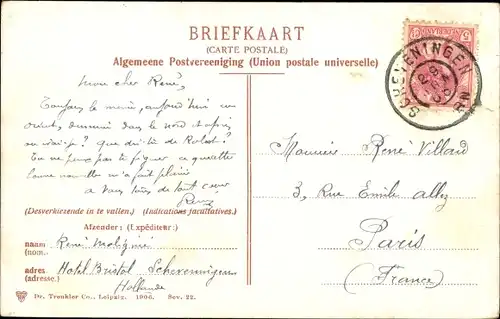 BRIEFKAART
(CARTE POSTALE)
Algemeene Postvereeniging (Union postale universelle)
5
SCHEVENINGEN
mon cher René,
Toujours le même, aujourd'hui en
orient, demain dans le nord et après
où irai-je? que dis-tu de
Tu ne peux pas te figurer ce que cette
bonne nouvelle m'a fait plaisir
à vous tous de tout cœur
René
(Desverkiezende in te vullen.) (Indications facultatives.)
Afzender: (Expéditeur:)
naam: René
(nom.)
adres Hotel Bristol Scheveningen
(adresse.) Hollande
Dr. Trenkler Co., Leipzig. 1906. Sev. 22.
Monsieur René Villard
3, Rue Emile allez
Paris
(France)